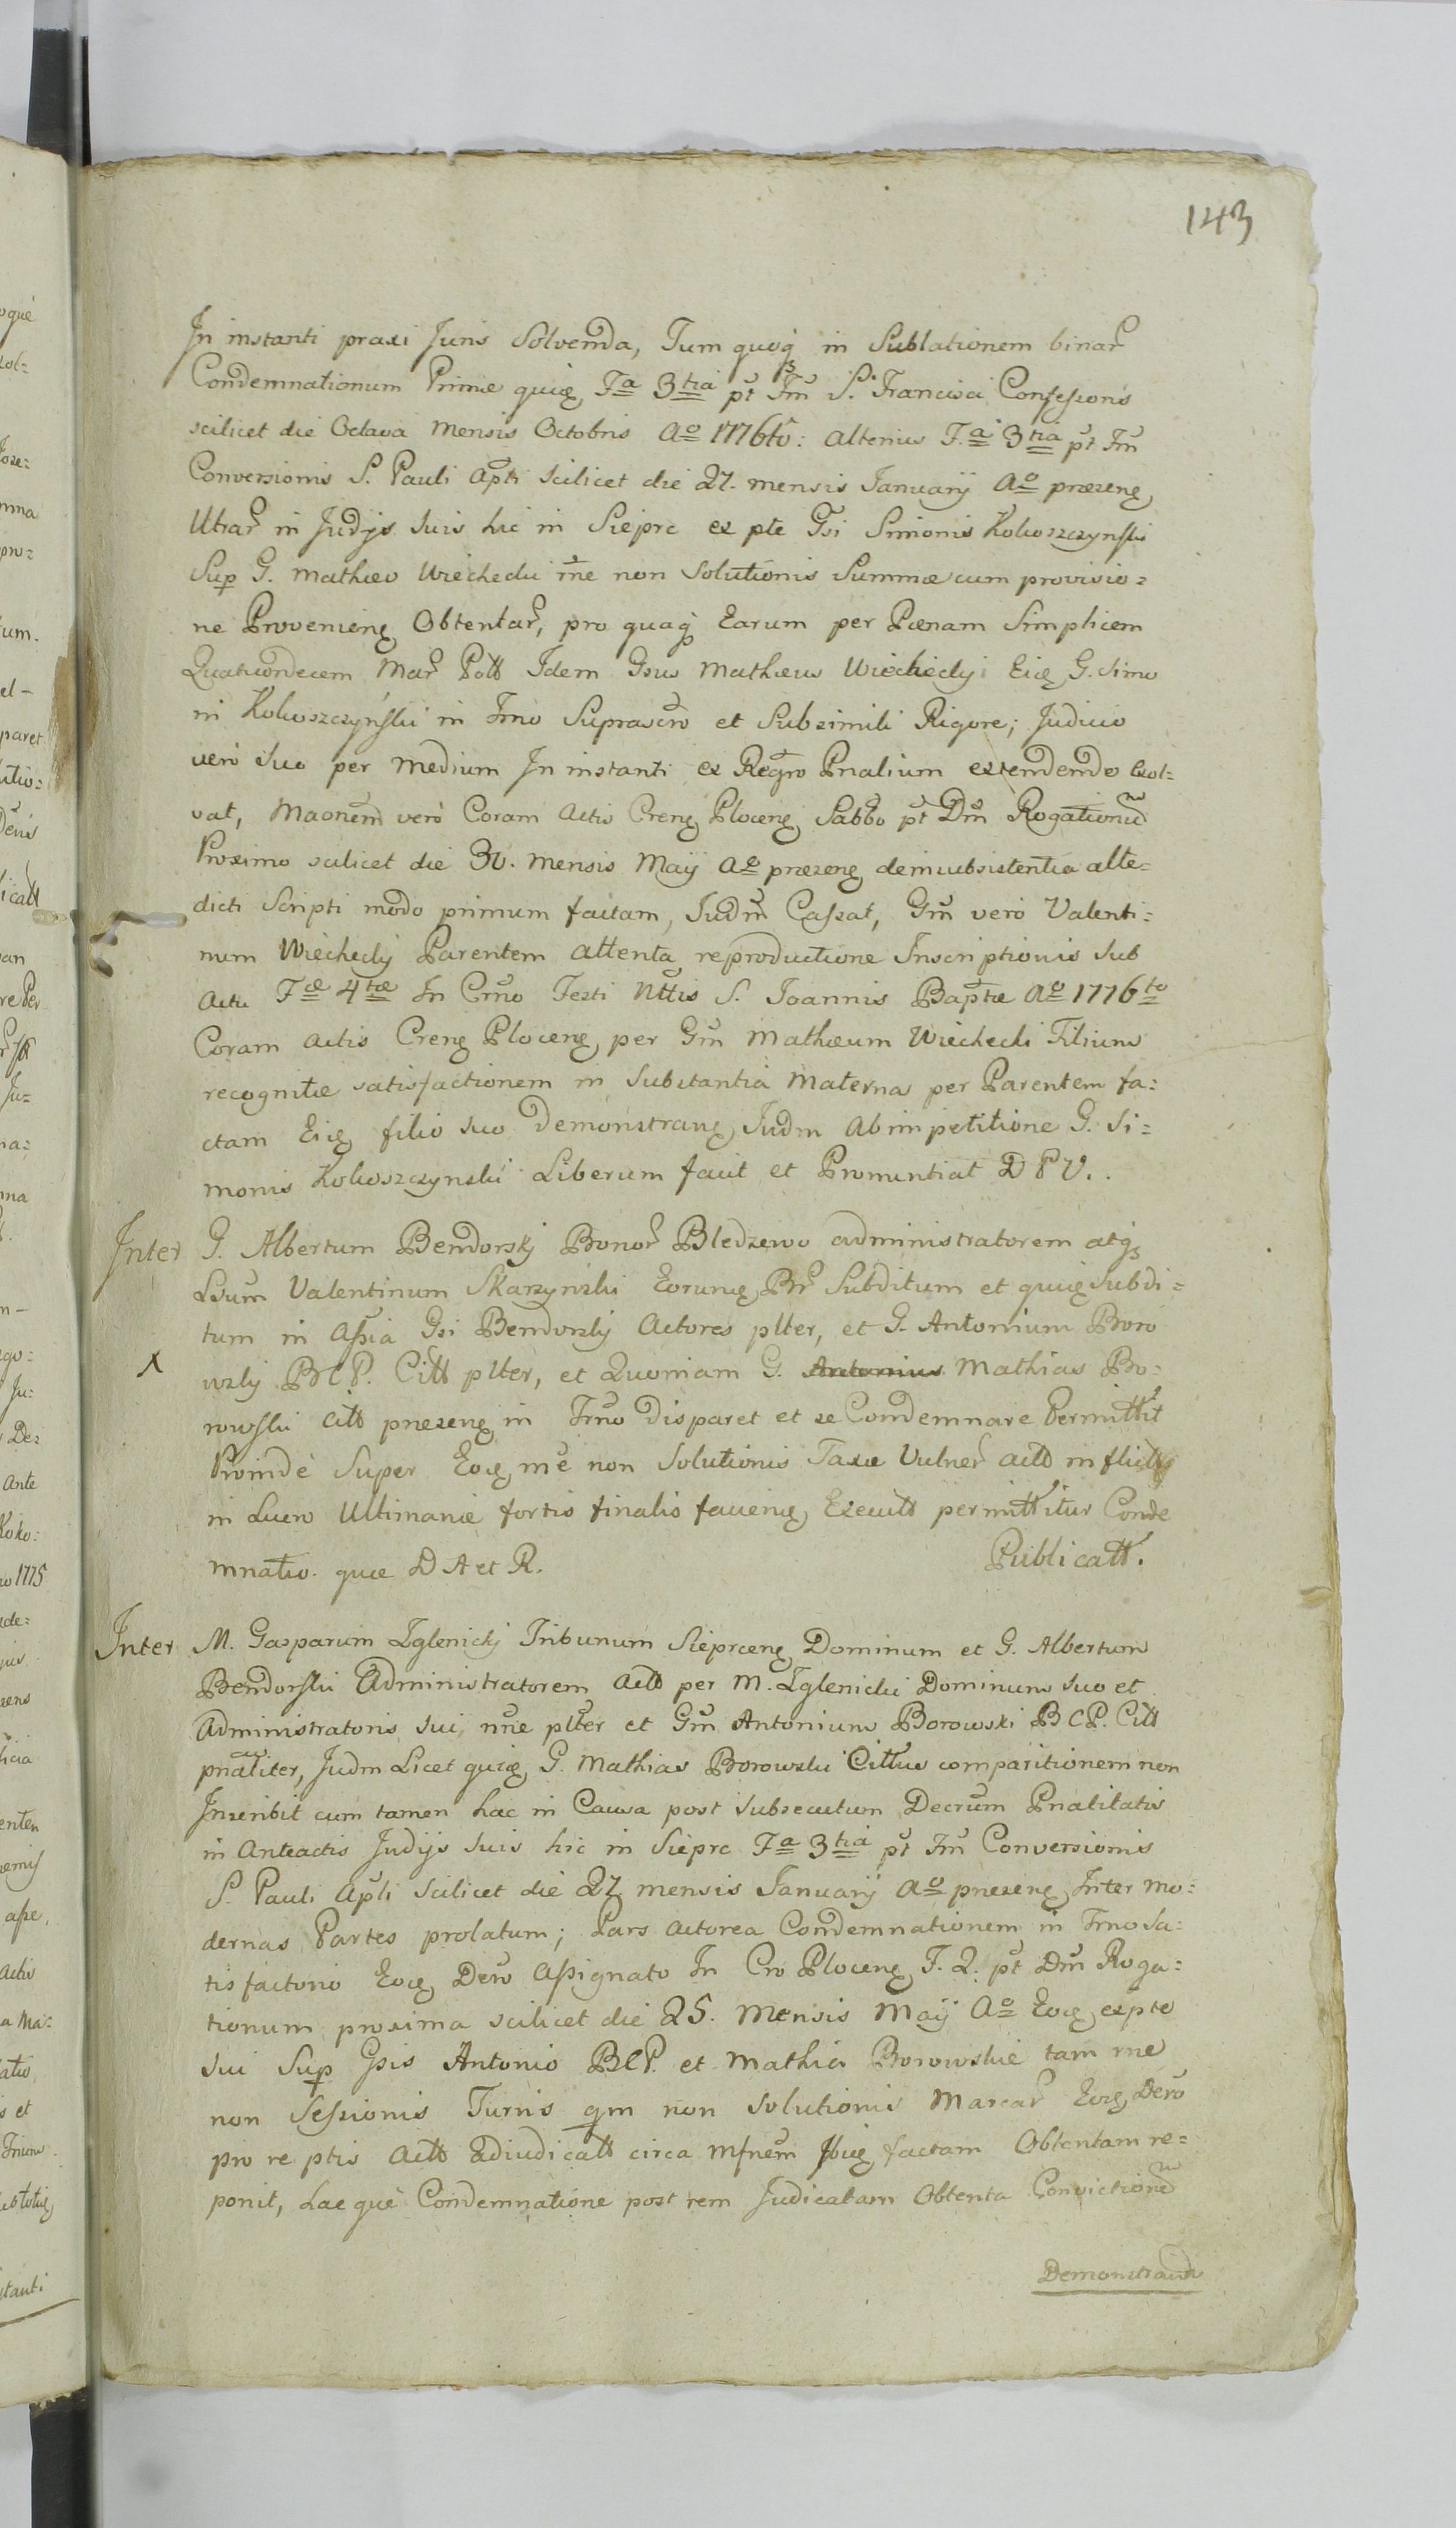 143
In instanti praxi Juris Solvenda, Tum quoq in Sublationem binar
Condemnationum Primæ quiæ Fa 3tia pt Fm S. Francisci Confessoris
scilicet die Octava Mensis Octobris Ao 1776to: alterius F.a 3tia pt Fm
Conversionis S. Pauli Apti scilicet die 27. mensis January Ao præsenę
Utrar in Judijs suis hic in Sieprc ex pte Gsi Simonis Kokoszczynski
Sup G. Mathæo Wiechecki rne non Solutionis Summæ cum provisio=
ne Provenienę Obtentar, pro quaq Earum per Pœnam Simplicem
Quatuordecem Mar Poll Idem Gsus Mathæus Wiechecky Eidę G. Simo
ni Kokoszczyński in Trno Suprascro et Subsimili Rigore; Judicio
verò suo per Medium In instanti ex Regro Pnalium extendendo Exol=
vat, Maonem verò Coram Actis Crenę Plocenę Sabbo pt Dm Rogationu
Proximo scilicet die 30. mensis Maÿ Ao præsenę de insubsistentia alte=
dicti Scripti modo primum factam, Judm Cassat, Gm verò Valenti=
num Wiechecky Parentem attenta reproductione Inscriptionis Sub
Actu Fæ 4tæ In Crno Festi Nttis S. Joannis Baptæ Ao 1776to
Coram Actis Crenę Plocenę per Gm Mathæum Wiechecki Filium
recognitæ satisfactionem in Substantia Materna per Parentem fa=
ctam Eidę filio suo Demonstranę Judm Ab impetitione G. Si=
monis Kokoszczynski Liberum facit et Pronuntiat D P V.
Inter G. Albertum Bendorsky Bonor Bledzewo administratorem atq
Lsum Valentinum Skarzyński Eorundę Br Subditum et quidę Subdi=
tum in Assia Gsi Bendorsky Actores plter, et G. Antonium Boro
wsky B C P. Citt plter, et Quoniam G. Antonius Mathias Bo=
rowski Citt præsenę in Trno Disparet et se Condemnare Permittit
Proindè Super Eodę rne non Solutionis Taxæ Vulner Actt inflict
in Lucro Ultimariæ fortis finalis favenę Executt permittitur Conde
mnatio. quæ D A et R. Publicatt.
Inter M. Gasparum Zglenicky Tribunum Sieprcenę Dominum et G. Albertum
Bendorski Administratorem Actt per M. Zglenicki Dominum suo et
Administratoris sui nne plter et Gm Antonium Borowski B C P. Citt
pnaliter, Judm Licet quidę G. Mathias Borowski Cittus comparitionem non
Inscribit cum tamen hac in Causa post subsecutum Decrum Pnalitatis
in Anteactis Judijs suis hic in Sieprc Fa 3tia pt Fm Conversionis
S. Pauli Apli scilicet die 27 mensis January Ao præsenę Inter mo=
dernas Partes prolatum; Pars Actorea Condemnationem in Trno Sa=
tisfactorio Eodę Dero Assignato In Cro Plocenę F. 2. pt Dm Roga=
tionum proxima scilicet die 25. Mensis Maÿ Ao Eodę ex pte
sui Sup Gsis Antonio B C P. et Mathia Borowskie tam rne
non Sessionis Turris qm non Solutionis Marcar Eodę Dero
pro re ptis Actt Adiudicatt circa factam Obtentam re=
ponit, hac què Condemnatione post rem Judicatam Obtenta Convictione
Demonstrandi